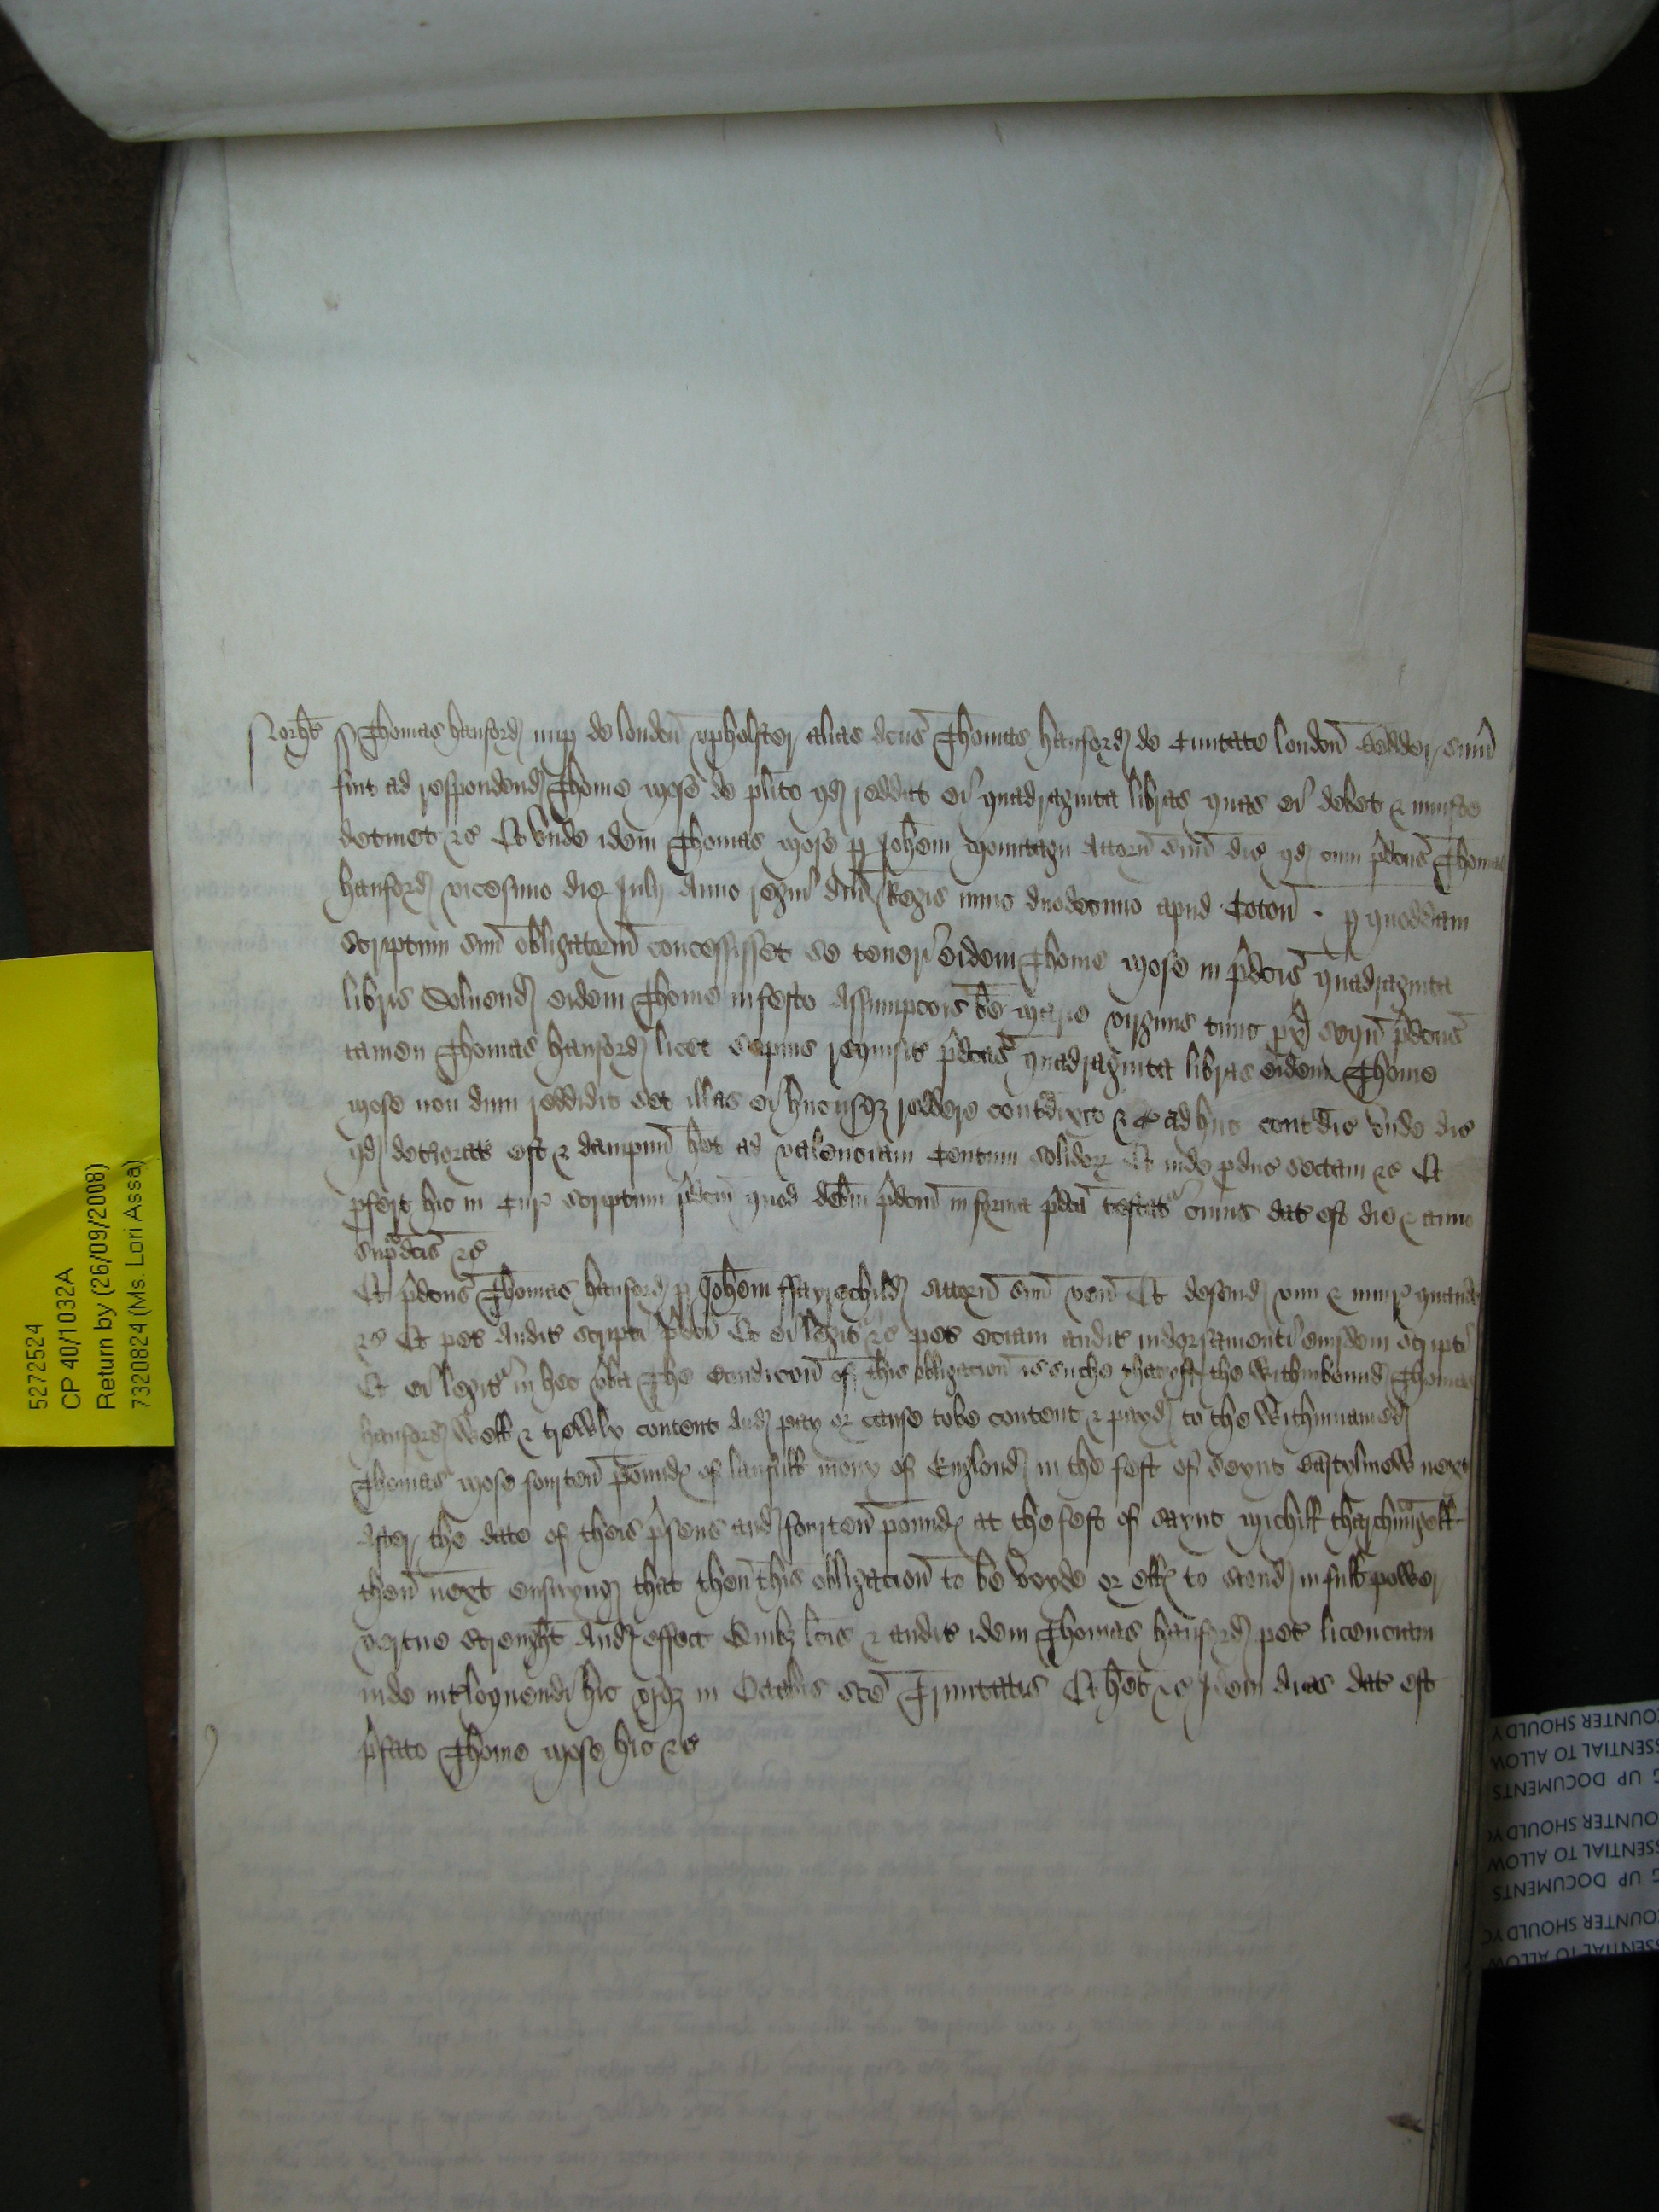 Norht ss Thomas Hanford nup de london upholster alias dcus Thomas Hanford de Civitate london Bedder sum
fuit ad respondend Thome Mose de plito qd reddat ei quadraginta libras quas ei debet & iniuste
detinet &c Et unde idem Thomas Mose p Johem Mountagu Attorn suu dic qd cum pdcus Thomas
Hanford vicesimo die Julij Anno regni dni Regis nunc duodecimo apud Coton p quoddam
scriptum suu obligatoriu concessisset se teneri eidem Thome Mose in pdcis quadraginta
libris Solvend eidem Thome in festo Assumpcois be Marie virginis tunc px sequen pdcus
tamen Thomas Hanford licet sepius requisit pdcas quadraginta libras eidem Thome
Mose non dum reddidit set illas ei hucusq reddere contdixit & adhuc contdic unde dic
qd deteriorat est & dampnu het ad valenciam Centum solidor Et inde pduc sectam &c Et
pfert hic in Cur scriptum pdcm quod debm pdcm in forma pdca testat cuius dat est die & anno
supadcis &c
Et pdcus Thomas Hanford p Johem ffayrechild Attorn suu ven Et defend vim & iniur quando
&c Et pet audit scripti pdci Et ei legit &c pet eciam audit indorsamenti eiusdem scripti
Et ei legit in hec vba The Condicon of this obligacion is suche that yf the withinbound Thomas
Hanford well & trewly content and pay or cause tobe content & payd to the withinnamed
Thomas Mose fourten pound of laufull mony of Englond in the fest of Seynt Bartylmew next
After the date of theis psens and fourten pound at the fest of saynt Michill tharchaungell
then next ensuyng that then this obligacion to be voyde or ell to stend in full power
vertue strenght And effect Quibz lcis & audit idem Thomas Hanford pet licenciam
inde intloquendi hic usqz in Octabis sce Trinitatis Et het &c Idem dies dat est
pfato Thome Mose hic &c
5272524
CP 40/1032A
Return by (26/09/2008)
7320824 (Ms. Lori Assa)
OUNTER SHOULD Y
SSENTIAL TO ALLOW
G UP DOCUMENTS
OUNTER SHOULD YO
SSENTIAL TO ALLOW
G UP DOCUMENTS
COUNTER SHOULD YO
SSENTIAL TO ALLOW